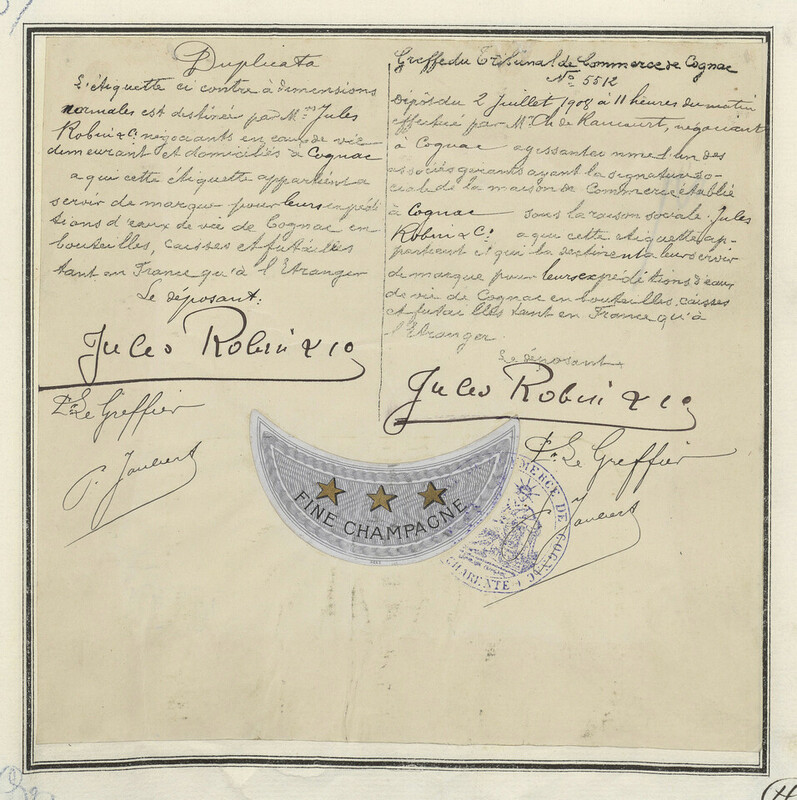 Duplicata
L'étiquette ci contre à dimensions
normales est destinée par Mrs Jules
Robin & Co négociants en eaux de vie
demeurant et domiciliés à Cognac
a qui cette étiquette appartient a
servir de marque pour leurs expédi
tions d'eaux de vie de Cognac en
bouteilles, caisses et futailles
tant en France qu'à l'Etranger
Le déposant:
Jules Robin & Co
Pr Le Greffier
Greffe du Tribunal de Commerce de Cognac
No 5512
Dépôt du 2 Juillet 1908 à 11 heures du matin
effectué par Mr Ch. de Rancourt, négociant
à Cognac agissant comme l'un des
associés gérants ayant la signature so-
ciale de la maison de Commerce établie
à Cognac sous la raison sociale Jules
Robin & Co a qui cette étiquette ap-
partient et qui la destinent a leur servir
de marque pour leurs expéditions d'eaux
de vie de Cognac en bouteilles, caisses
et futailles tant en France qu'à
l'Etranger.
Le déposant
Jules Robin & Co
Pr Le Greffier
FINE CHAMPAGNE
COMMERCE DE COGNAC
CHARENTE